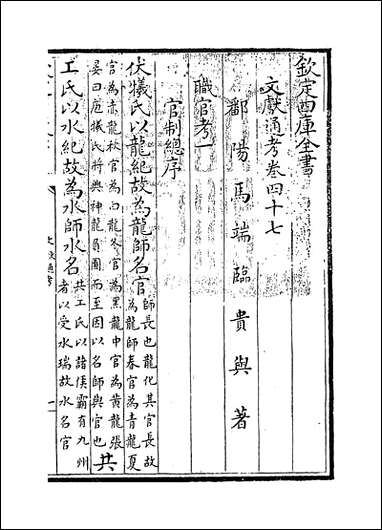 欽定四庫全書
文獻通考卷四十七
鄱陽馬端臨貴與著
職官考一
官制總序
伏犧氏以龍紀故為龍師名官師長也龍化其官長故
為龍師春官為青龍夏
官為赤龍秋官為白龍冬官為黑龍中官為黃龍張
晏曰庖犧氏將興神龍負圖而至因以名師與官也共
工氏以水紀故為水師水名共工氏以諸侯霸有九州
者以受水瑞故水名官
文獻通考
一